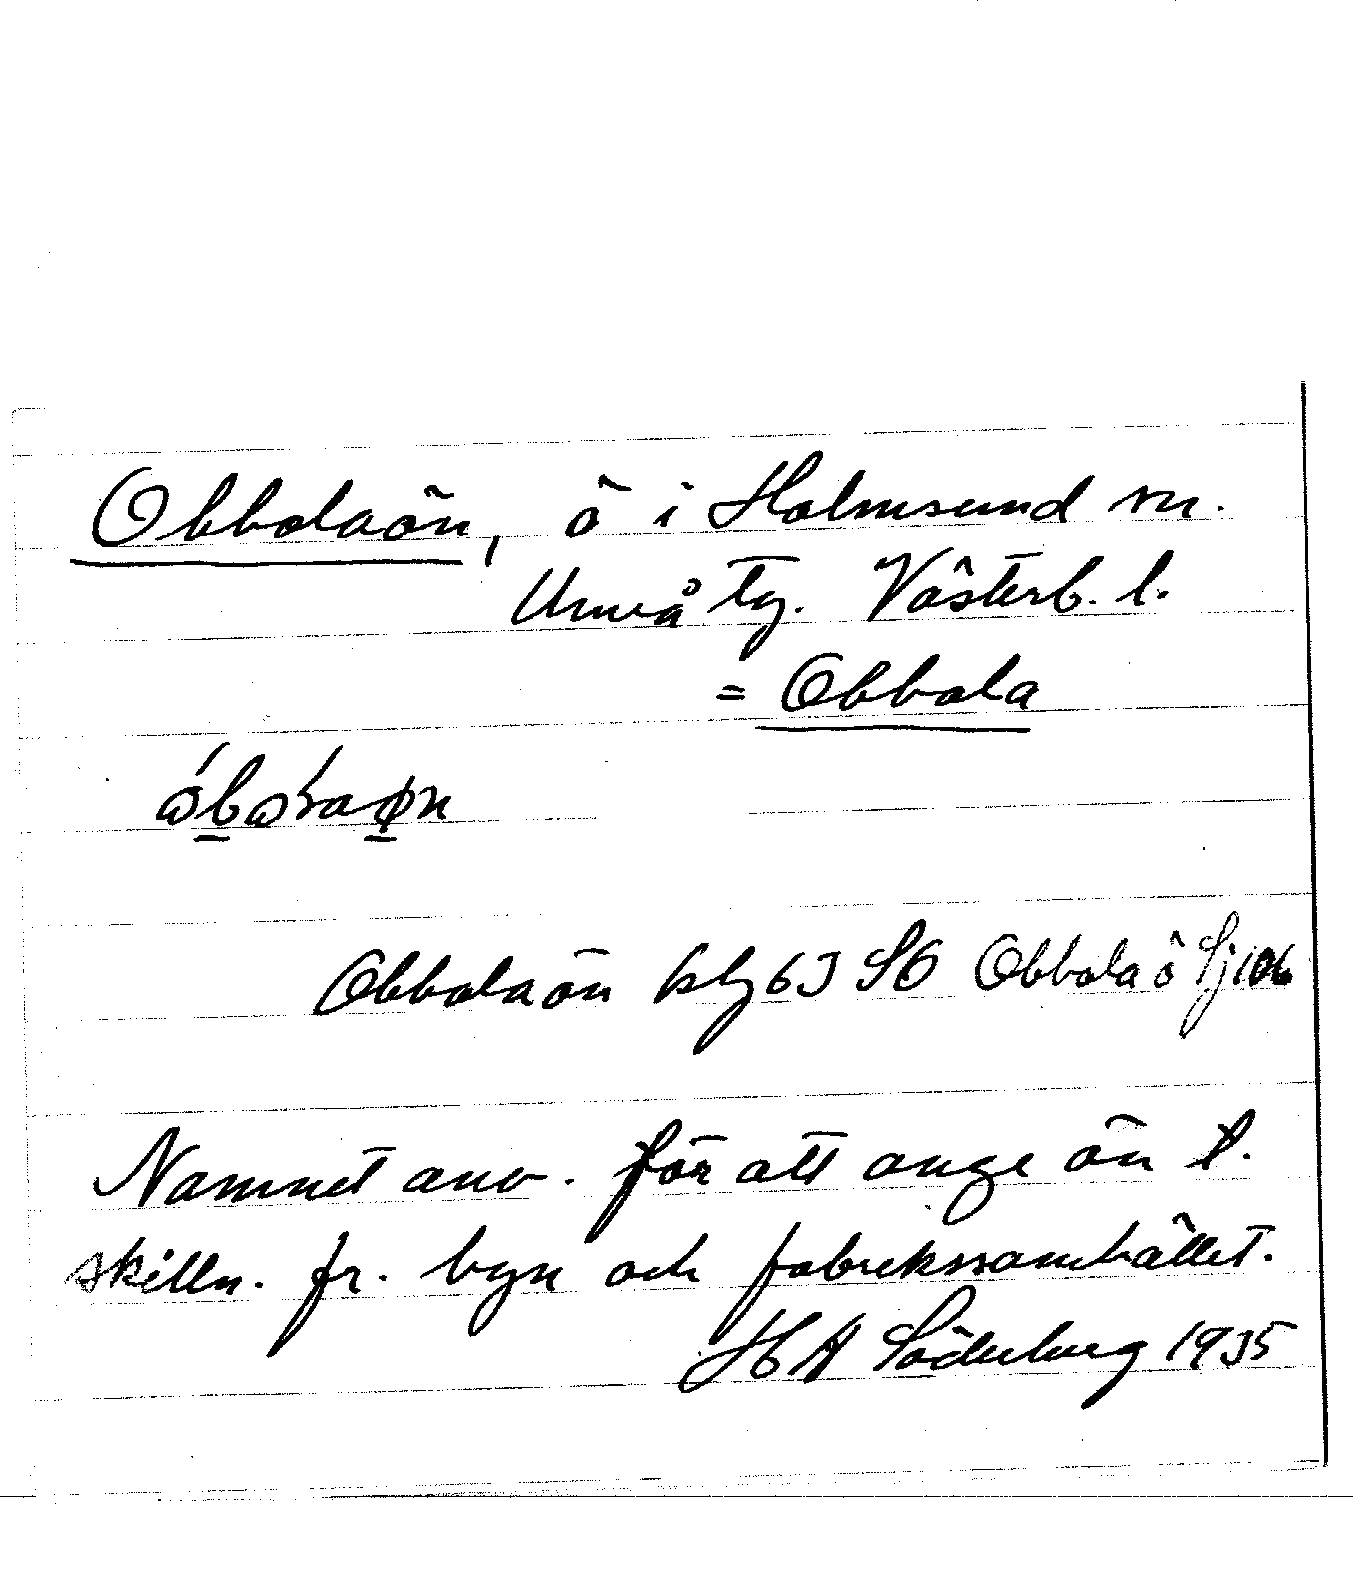 Obbolaön, ö i Holmsund sn.
Umeå tg. Västerb. l.
= Obbola
Obbolaön kbl 63 SO Obbola ö Sj 106
Namnet anv. för att ange ön t.
skilln. fr. byn och fabrikssamhället.
HA Söderberg 1935